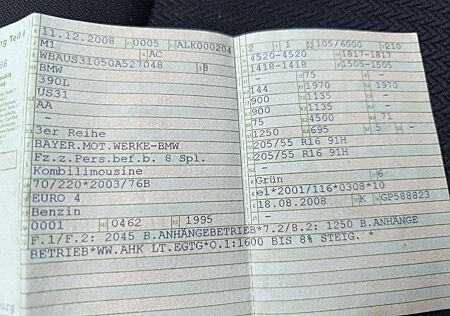 ng Teil I
11.12.2008 0005 ALK000204
M1 AC
WBAUS31050A527048 8
BMW
390L
US31
AA
-
3er Reihe
BAYER.MOT.WERKE-BMW
Fz.z.Pers.bef.b. 8 Spl.
Kombilimousine
70/220*2003/76B
EURO 4
Benzin
0001 0462 1995
2 1 105/6000 210
4520-4520 1817-1817
1418-1418 1505-1505
- 75 -
144 1970 1970
900 1135 -
900 1135 -
75 4500 71
1250 695 5 -
205/55 R16 91H
205/55 R16 91H
-
-
Grün 6
e1*2001/116*0308*10
18.08.2008 K GP588823
-
F.1/F.2: 2045 B.ANHÄNGEBETRIEB*7.2/8.2: 1250 B.ANHÄNGE
BETRIEB*WW.AHK LT.EGTG*O.1:1600 BIS 8% STEIG. *